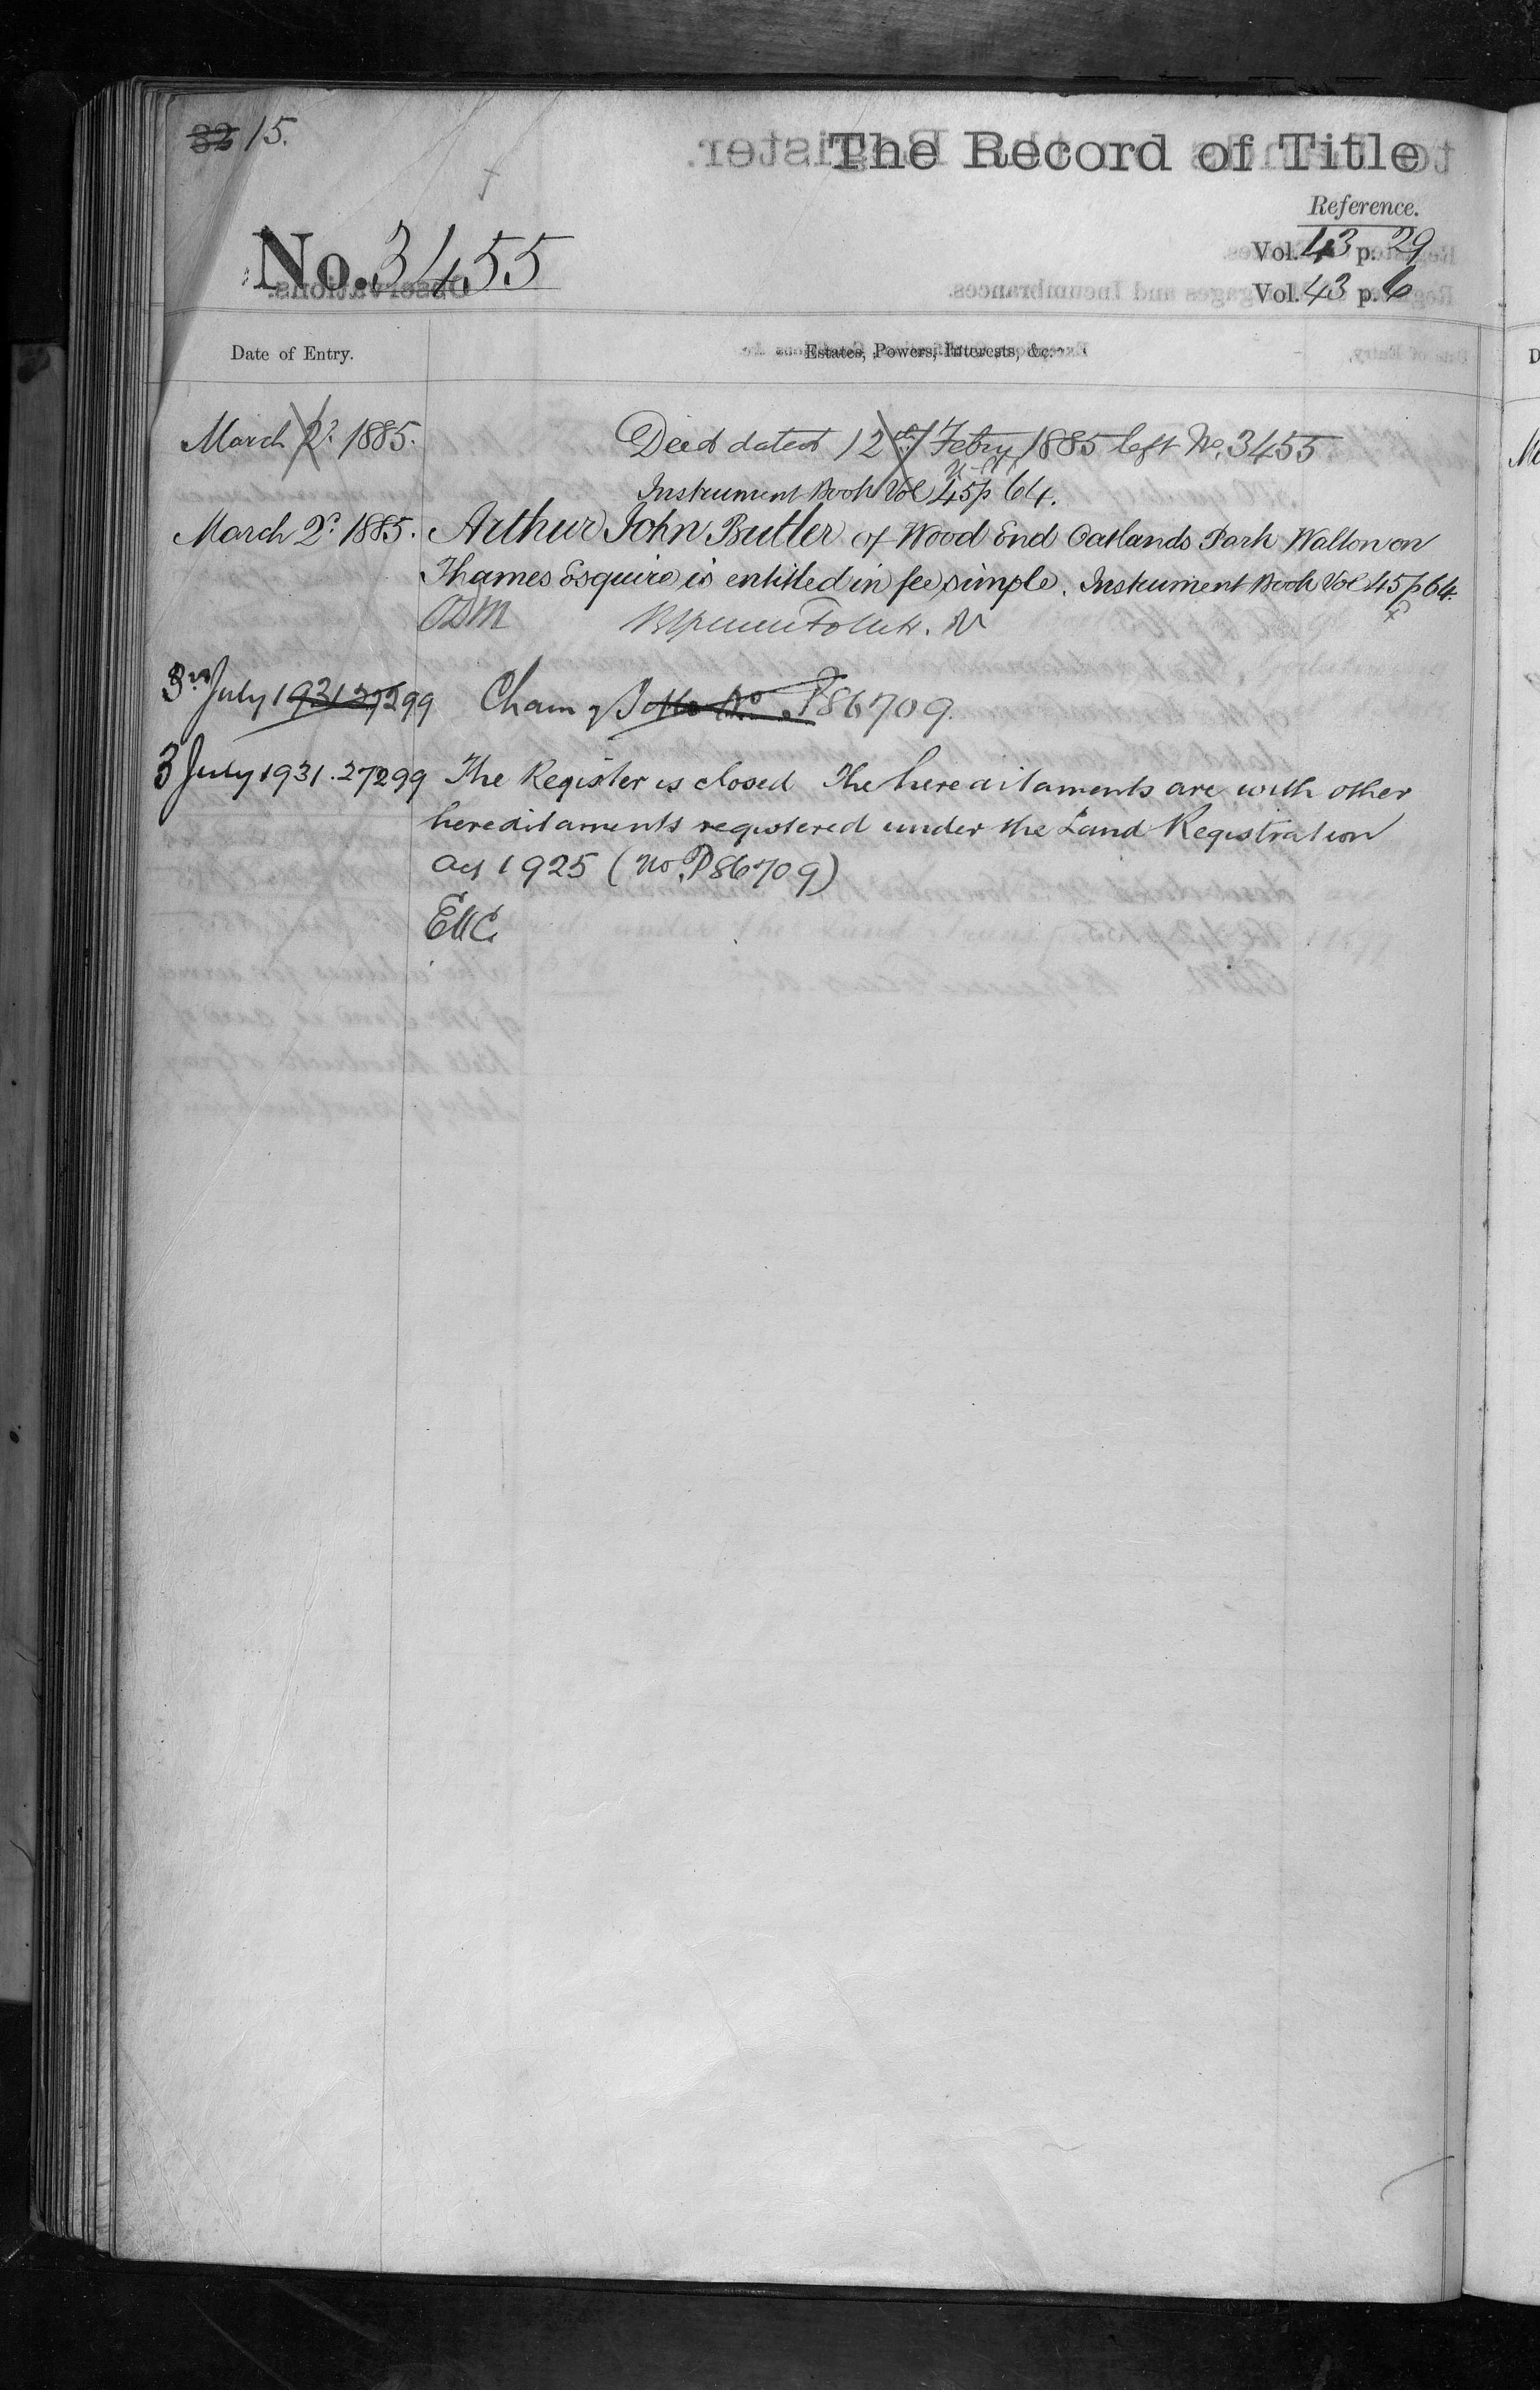 32 15.
The Record of Title
Reference.
No. 3455
Vol. 43 p. 29
Vol. 43 p. 6
Date of Entry.
Estates, Powers, Interests, &c.
March 2d. 1885.
Deed dated 12th Febry 1885 left No. 3455
Instrument Book Vol 45 p 64.
March 2d. 1885.
Arthur John Butler of Wood End Oatlands Park Walton on
Thames Esquire is entitled in fee simple. Instrument Book Vol 45 p 64.
3rd July 1931 27299
P86709.
3 July 1931. 27299
The Register is closed The hereditaments are with other
hereditaments registered under the Land Registration
Act 1925 (No. P86709)